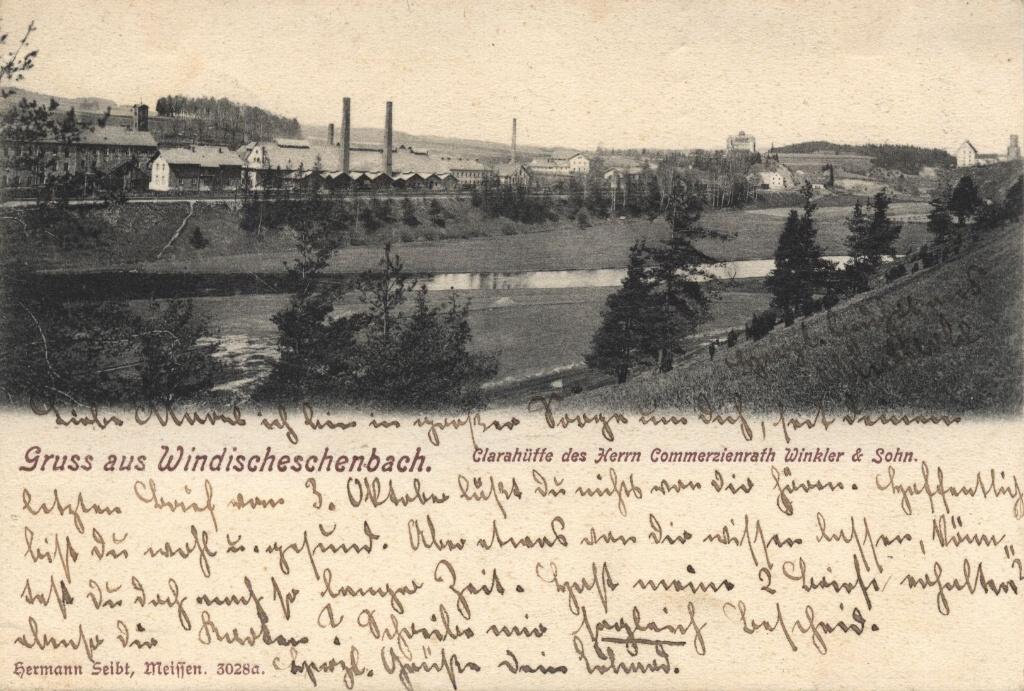 Liebe Marie ich bin in großer Sorge um dich, seit deinem
Gruss aus Windischeschenbach. Clarahütte des Herrn Commerzienrath Winkler & Sohn.
letzten Brief vom 3. Oktober läßt du nichts von dir hören. Hoffentlich
bist du wohl u. gesund. Aber etwas von dir wissen lassen, könn„
test du doch nach so langer Zeit. Hast meine 2 Briefe erhalten?
ebenso die Karten? Schreibe mir sogleich Bescheid.
Hermann Seibt, Meissen. 3028a. Herzl. Grüße dein